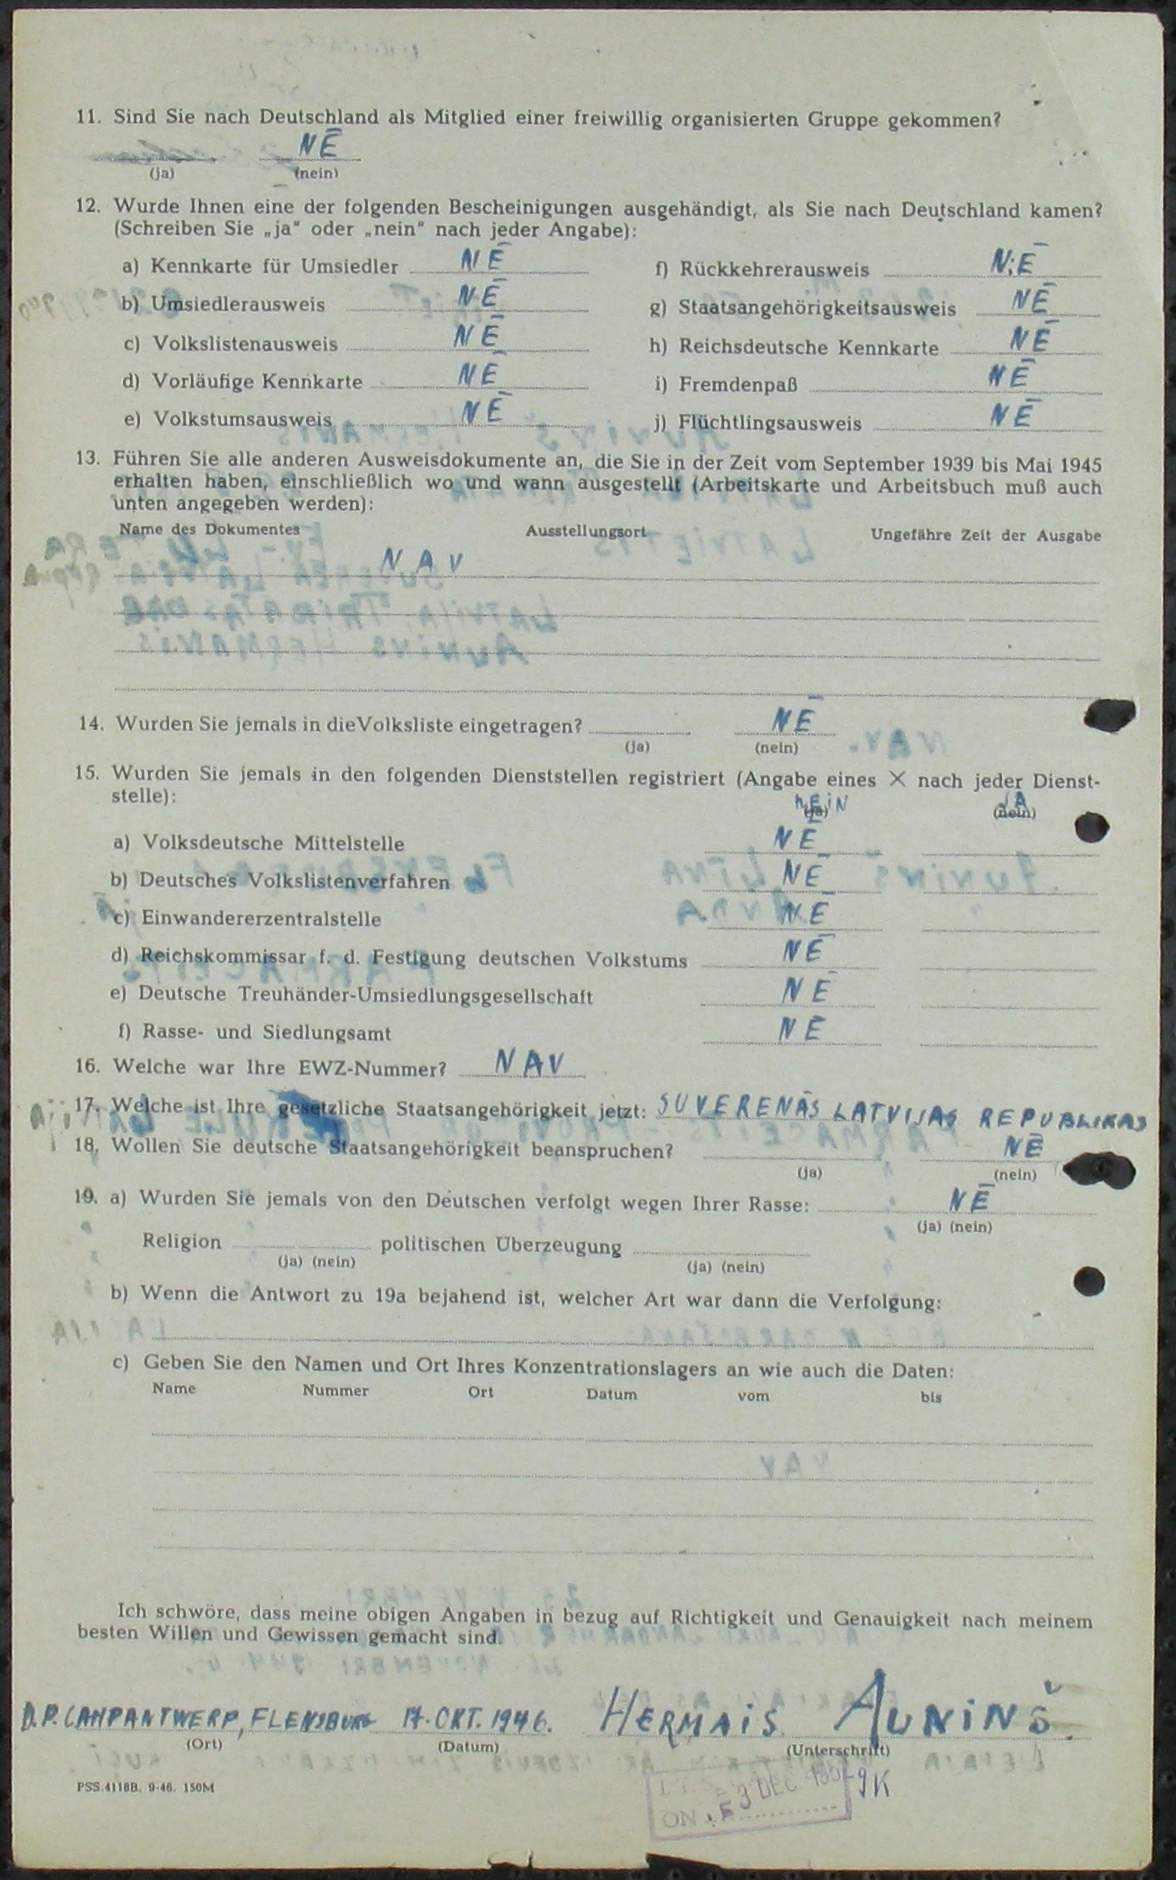 11. Sind Sie nach Deutschland als Mitglied einer freiwillig organisierten Gruppe gekommen?
NĒ
(ja) (nein)
12. Wurde Ihnen eine der folgenden Bescheinigungen ausgehändigt, als Sie nach Deutschland kamen?
(Schreiben Sie „ja" oder „nein" nach jeder Angabe):
a) Kennkarte für Umsiedler NĒ f) Rückkehrerausweis NĒ
b) Umsiedlerausweis NĒ g) Staatsangehörigkeitsausweis NĒ
c) Volkslistenausweis NĒ h) Reichsdeutsche Kennkarte NĒ
d) Vorläufige Kennkarte NĒ i) Fremdenpaß NĒ
e) Volkstumsausweis NĒ j) Flüchtlingsausweis NĒ
13. Führen Sie alle anderen Ausweisdokumente an, die Sie in der Zeit vom September 1939 bis Mai 1945
erhalten haben, einschließlich wo und wann ausgestellt (Arbeitskarte und Arbeitsbuch muß auch
unten angegeben werden):
Name des Dokumentes Ausstellungsort Ungefähre Zeit der Ausgabe
NAV
14. Wurden Sie jemals in die Volksliste eingetragen? NĒ
(ja) (nein)
15. Wurden Sie jemals in den folgenden Dienststellen registriert (Angabe eines X nach jeder Dienst-
stelle): NEIN JA
(ja) (nein)
a) Volksdeutsche Mittelstelle NĒ
b) Deutsches Volkslistenverfahren NĒ
c) Einwandererzentralstelle NĒ
d) Reichskommissar f. d. Festigung deutschen Volkstums NĒ
e) Deutsche Treuhänder-Umsiedlungsgesellschaft NĒ
f) Rasse- und Siedlungsamt NĒ
16. Welche war Ihre EWZ-Nummer? NAV
17. Welche ist Ihre gesetzliche Staatsangehörigkeit jetzt: SUVERENĀS LATVIJAS REPUBLIKAS
18. Wollen Sie deutsche Staatsangehörigkeit beanspruchen? NĒ
(ja) (nein)
19. a) Wurden Sie jemals von den Deutschen verfolgt wegen Ihrer Rasse: NĒ
(ja) (nein)
Religion politischen Überzeugung
(ja) (nein) (ja) (nein)
b) Wenn die Antwort zu 19a bejahend ist, welcher Art war dann die Verfolgung:
c) Geben Sie den Namen und Ort Ihres Konzentrationslagers an wie auch die Daten:
Name Nummer Ort Datum vom bis
Ich schwöre, dass meine obigen Angaben in bezug auf Richtigkeit und Genauigkeit nach meinem
besten Willen und Gewissen gemacht sind.
D.P. CAMPANTWERP, FLENSBURG 17. OKT. 1946. HERMAIS AUNINŠ
(Ort) (Datum) (Unterschrift)
PSS.4118B. 9-46. 150M
3 DEC
ON
9K